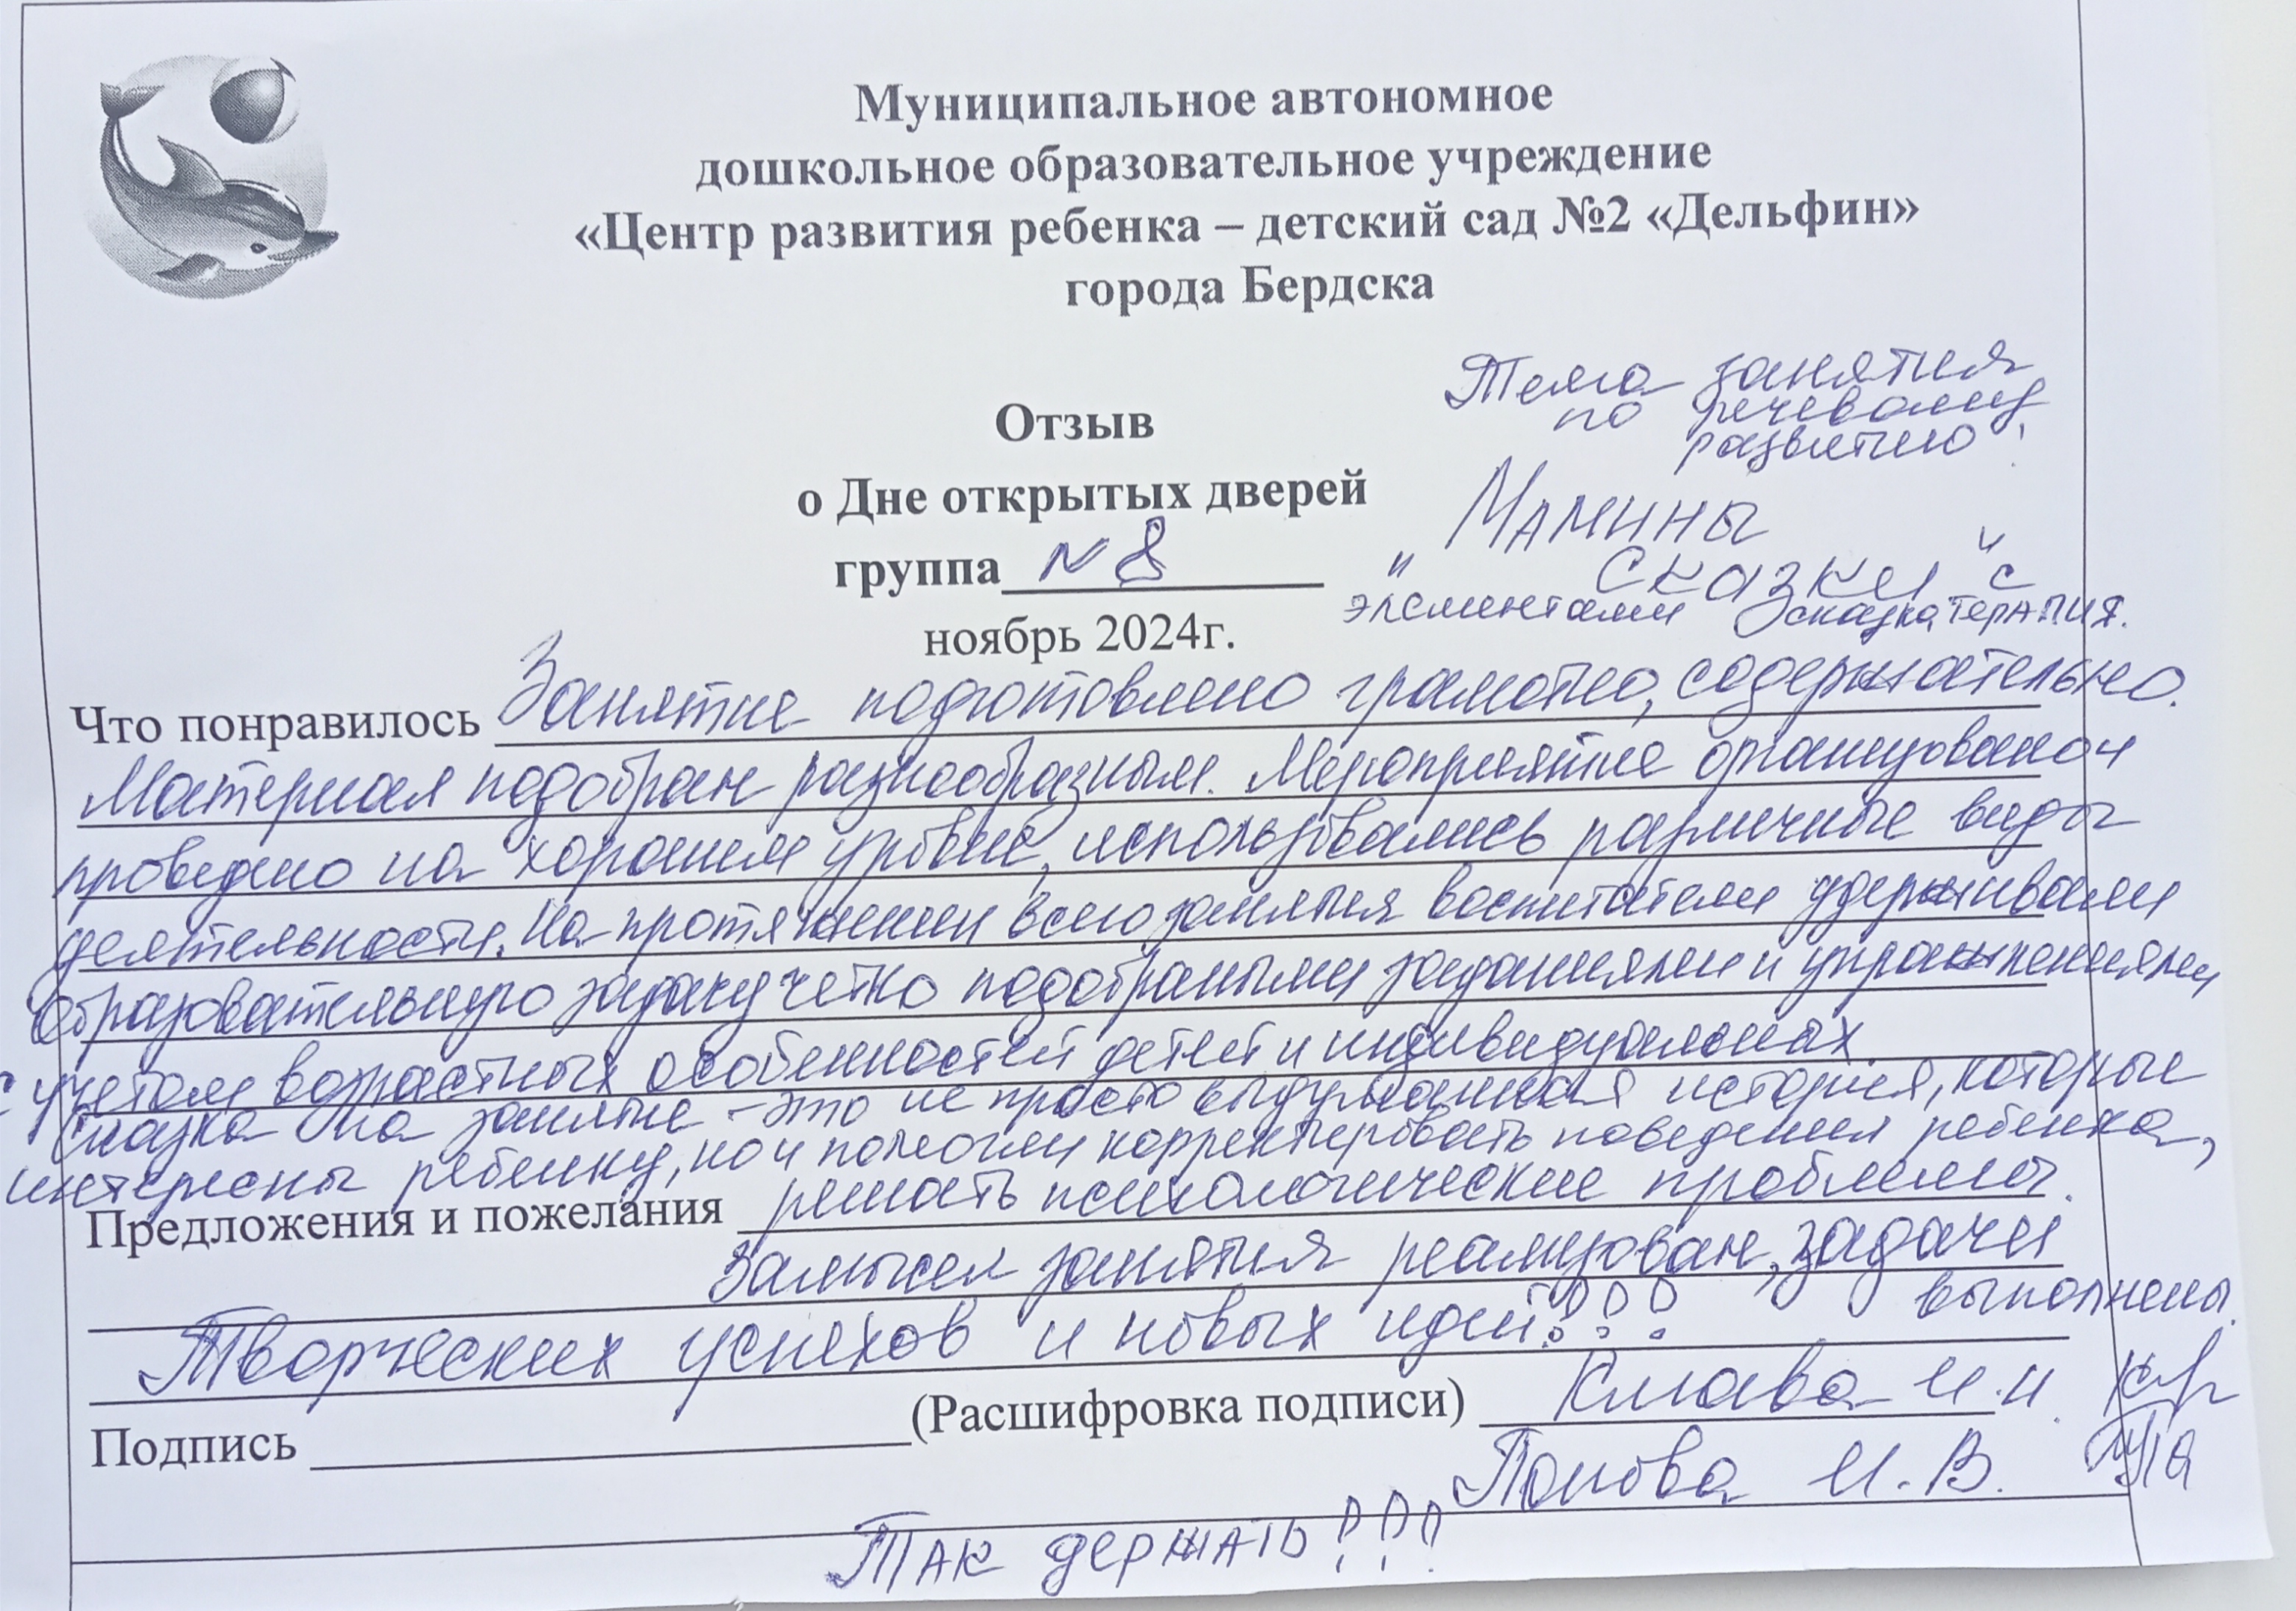 Муниципальное автономное
дошкольное образовательное учреждение
«Центр развития ребенка – детский сад №2 «Дельфин»
города Бердска
Тема занятия
по речевому
развитию:
Отзыв
о Дне открытых дверей
группа N 8
ноябрь 2024г.
Мамины
" сказки" с
элементами сказкатерапия.
Что понравилось Занятие подготовлено грамотно, содержательно.
Материал подобран разнообразным. Мероприятие организовано и
проведено на хорошем уровне, использовались различные виды
деятельности. На протяжении всего занятия воспитатели удерживали
образовательную задачу четко подобраными заданиями и упражнениями
с учетом возрастных особенностей детей и индивидуальных.
Сказка на занятие - это не просто выдуманная история, которые
интересны ребенку, но и помогли корректировать поведения ребенка,
Предложения и пожелания решать психологические проблемы.
Замысел занятия реализован, задачи
выполнены.
Творческих успехов и новых идей!!!
Подпись (Расшифровка подписи) И.И.
Попова И.В.
Так держать!!!